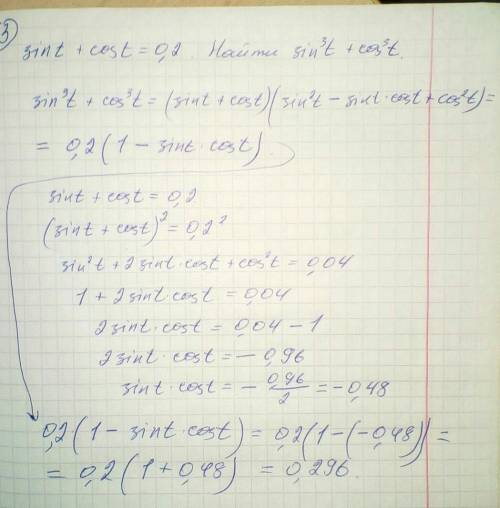 3)
sint + cost = 0,2. Найти sin³t + cos³t.
sin³t + cos³t = (sint + cost)(sin²t − sint·cost + cos²t) =
= 0,2(1 − sint·cost).
sint + cost = 0,2
(sint + cost)² = 0,2²
sin²t + 2sint·cost + cos²t = 0,04
1 + 2sint·cost = 0,04
2sint·cost = 0,04 − 1
2sint·cost = − 0,96
sint·cost = − 0,96/2 = −0,48
0,2(1 − sint·cost) = 0,2(1 − (−0,48)) =
= 0,2(1 + 0,48) = 0,296.